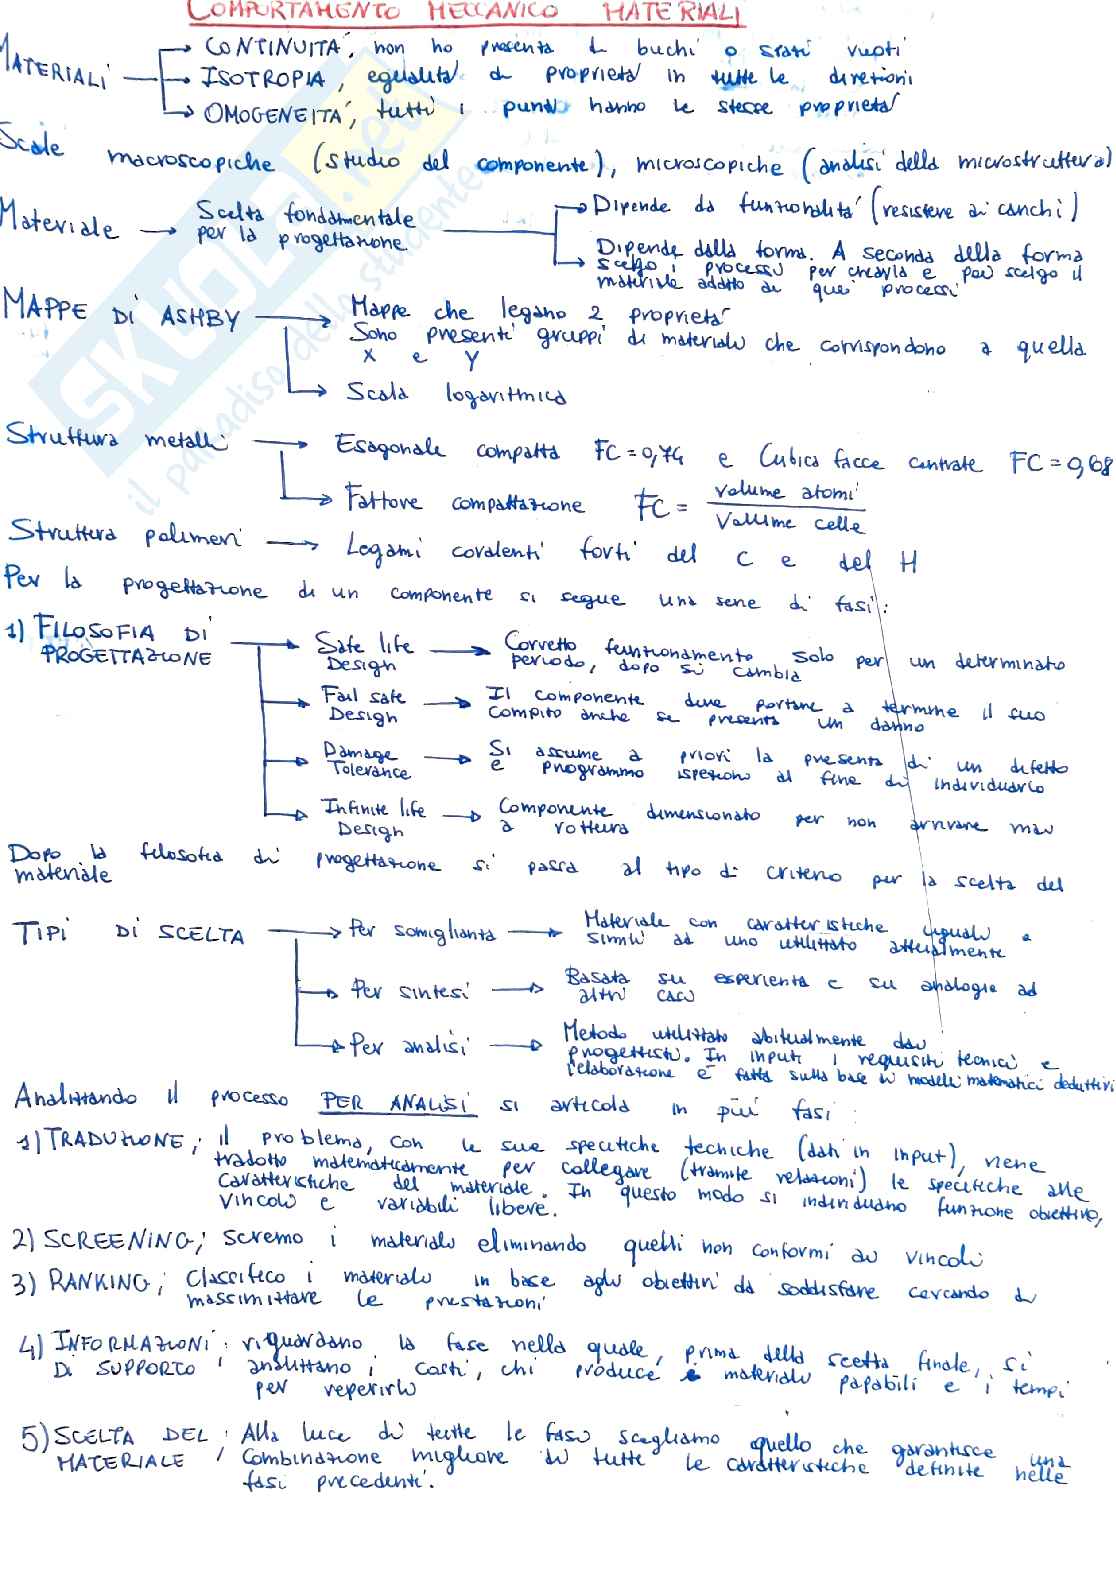 COMPORTAMENTO MECCANICO MATERIALI
MATERIALI → CONTINUITÀ, non ho presenza di buchi o spazi vuoti
→ ISOTROPIA, egualità di proprietà in tutte le direzioni
→ OMOGENEITÀ, tutti i punti hanno le stesse proprietà
Scale macroscopiche (studio del componente), microscopiche (analisi della microstruttura)
Materiale → Scelta fondamentale
per la progettazione
→ Dipende da funzionalità (resistere ai carichi)
→ Dipende dalla forma. A seconda della forma
scelgo i processi per crearla e poi scelgo il
materiale adatto a quei processi
MAPPE DI ASHBY → Mappe che legano 2 proprietà
Sono presenti gruppi di materiali che corrispondono a quella
X e Y
→ Scala logaritmica
Struttura metalli → Esagonale compatta FC=0,74 e Cubica facce centrate FC=0,68
→ Fattore compattazione FC = volume atomi
volume celle
Struttura polimeri → Legami covalenti forti del C e del H
Per la progettazione di un componente si segue una serie di fasi:
1) FILOSOFIA DI
PROGETTAZIONE
→ Safe life
Design → Corretto funzionamento solo per un determinato
periodo, dopo si cambia
→ Fail safe
Design → Il componente deve portare a termine il suo
compito anche se presenta un danno
→ Damage
Tolerance → Si assume a priori la presenza di un difetto
e programmo ispezioni al fine di individuarlo
→ Infinite life
Design → Componente dimensionato per non arrivare mai
a rottura
Dopo la filosofia di progettazione si passa al tipo di criterio per la scelta del
materiale
TIPI DI SCELTA → Per somiglianza → Materiale con caratteristiche uguali o
simili ad uno utilizzato attualmente
→ Per sintesi → Basata su esperienza e su analogie ad
altri casi
→ Per analisi → Metodo utilizzato abitualmente dai
progettisti. In input i requisiti tecnici e
l'elaborazione è fatta sulla base di modelli matematici deduttivi
Analizzando il processo PER ANALISI si articola in più fasi:
1) TRADUZIONE; il problema, con le sue specifiche tecniche (dati in input), viene
tradotto matematicamente per collegare (tramite relazioni) le specifiche alle
caratteristiche del materiale. In questo modo si individuano funzione obiettivo,
vincoli e variabili libere.
2) SCREENING; scremo i materiali eliminando quelli non conformi ai vincoli
3) RANKING; Classifico i materiali in base agli obiettivi da soddisfare cercando di
massimizzare le prestazioni
4) INFORMAZIONI
DI SUPPORTO; riguardano la fase nella quale, prima della scelta finale, si
analizzano i costi, chi produce i materiali papabili e i tempi
per reperirli
5) SCELTA DEL
MATERIALE; Alla luce di tutte le fasi scegliamo quello che garantisce una
combinazione migliore di tutte le caratteristiche definite nelle
fasi precedenti.
SKUOLA.net
il paradiso dello studente